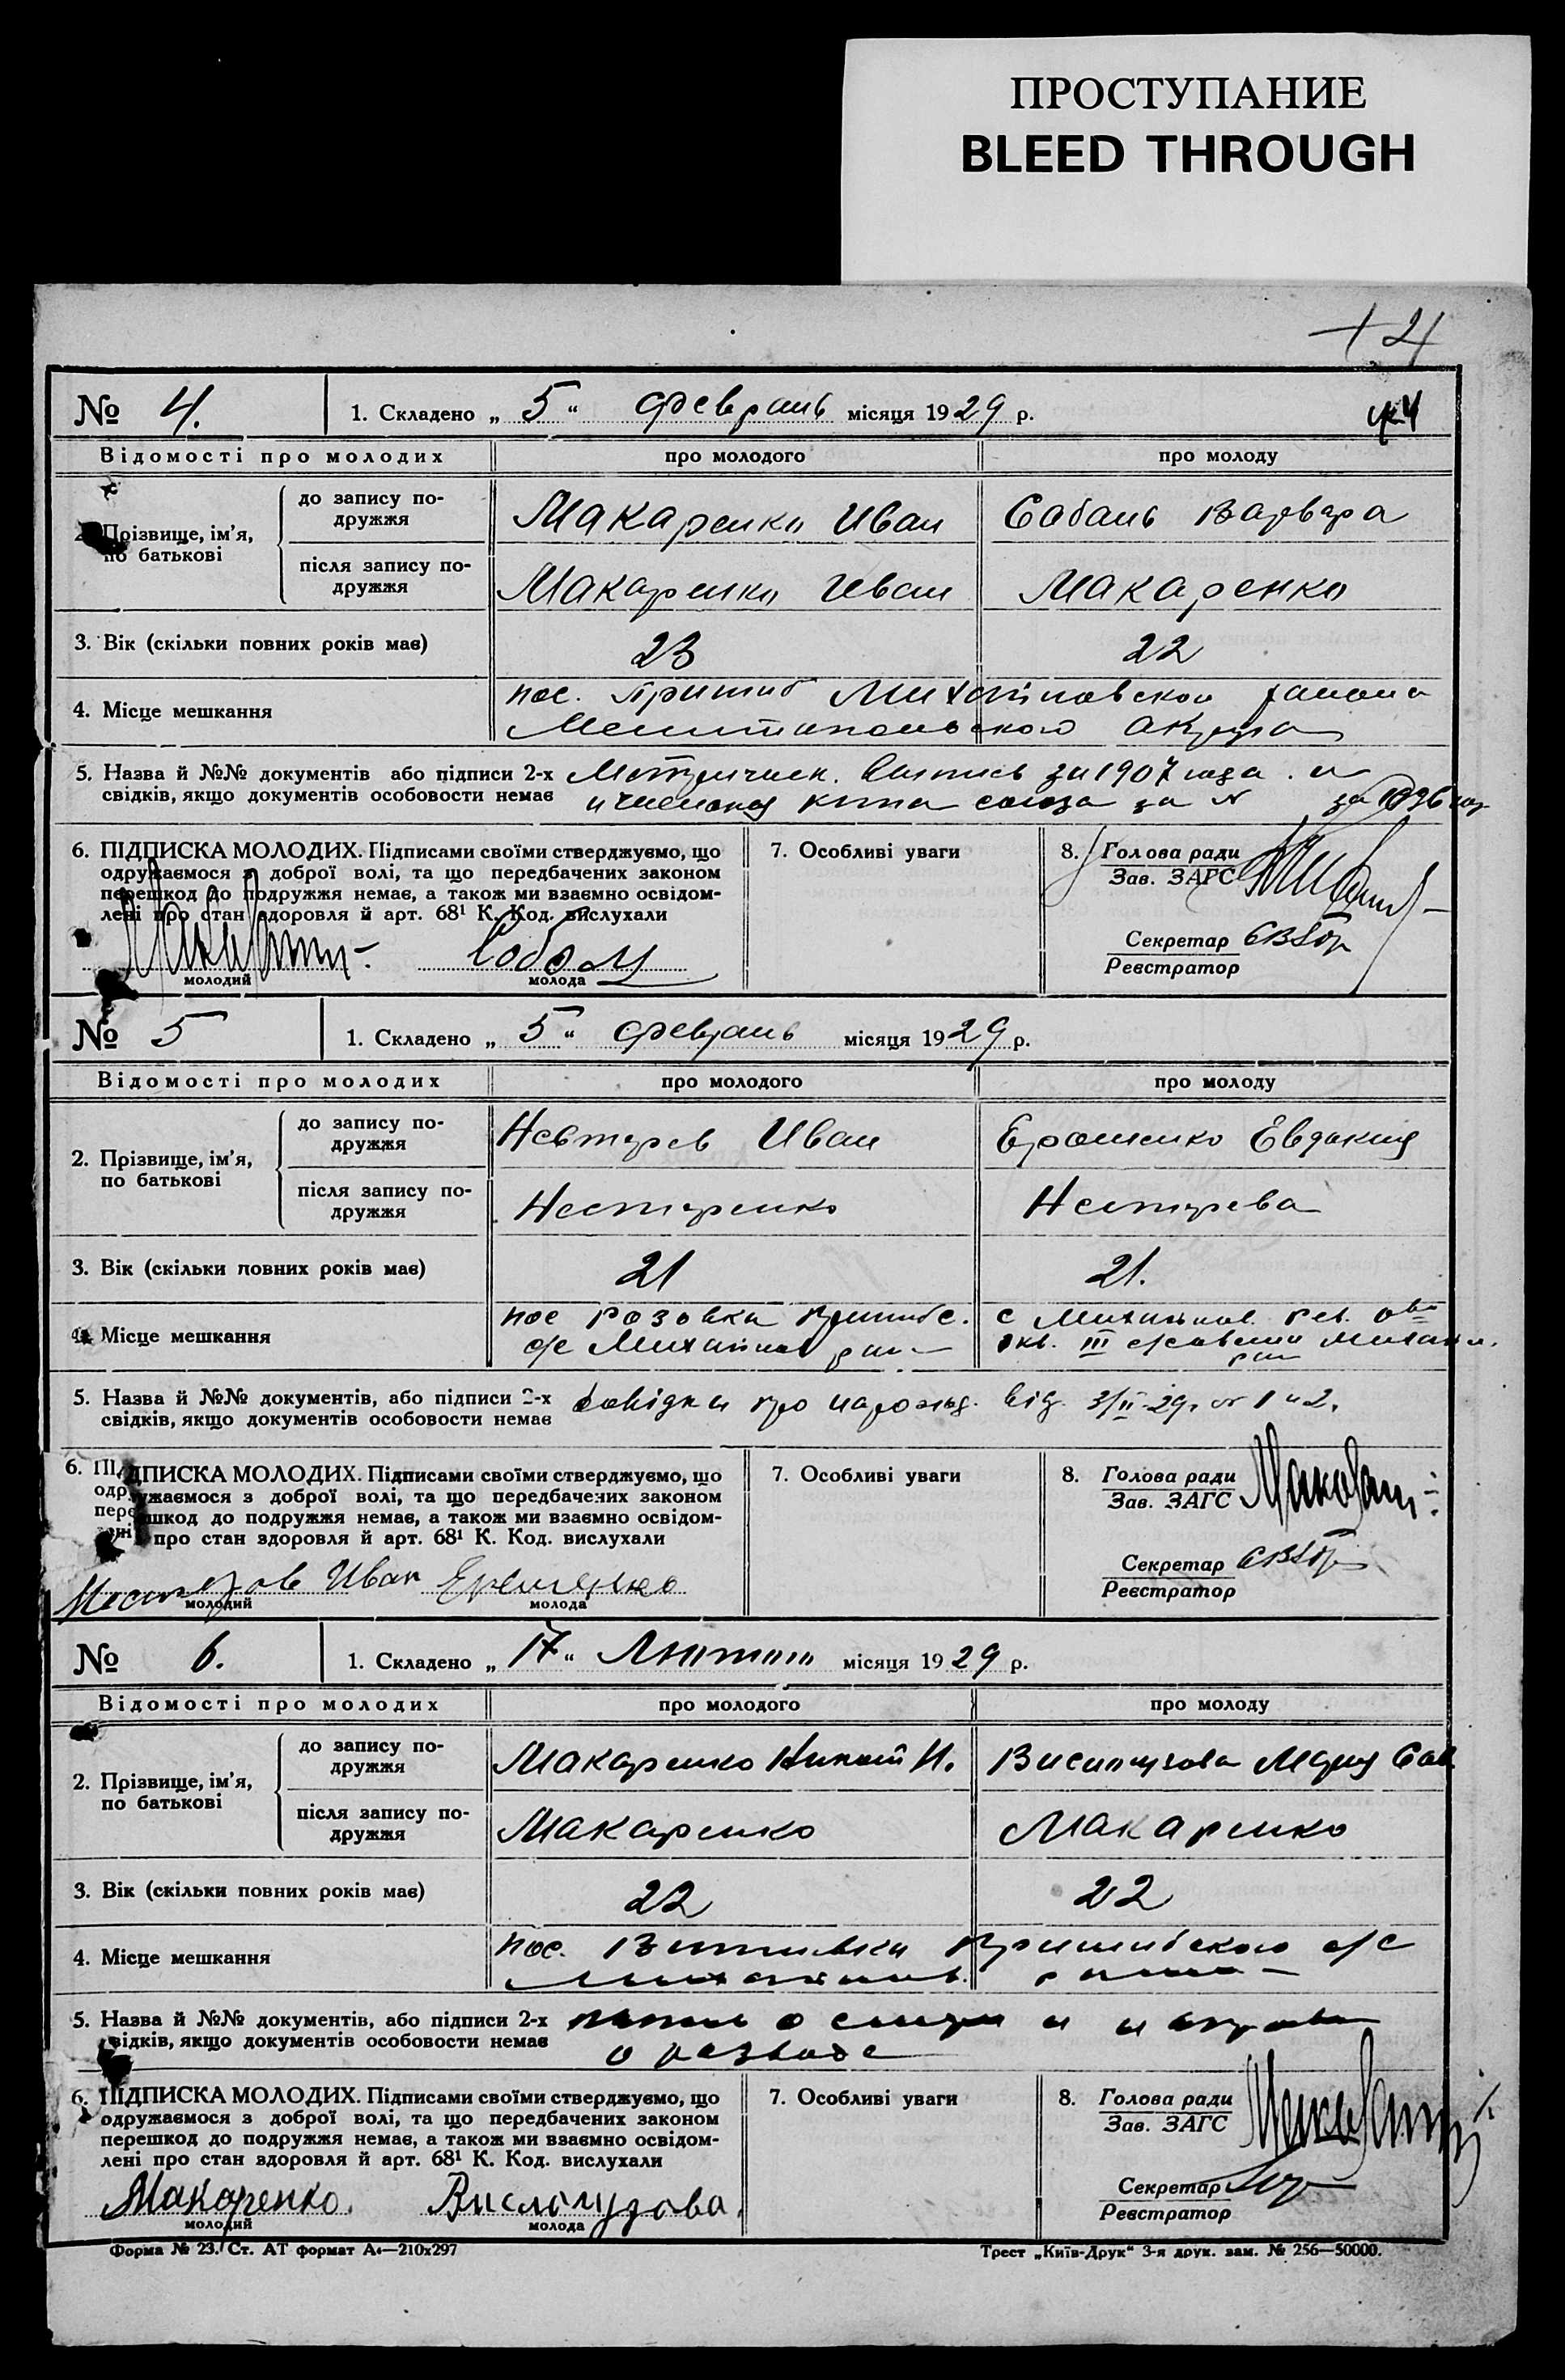 ПРОСТУПАНИЕ
BLEED THROUGH
24
№ 4. 1. Складено „ 5 “ февраль місяця 1929 р.
Відомості про молодих про молодого про молоду
2. Прізвище, ім'я, по батькові
до запису подружжя Макаренко Иван Собань Варвара
після запису подружжя Макаренко Иван Макаренко
3. Вік (скільки повних років має) 23 22
4. Місце мешкання пос. Пришиб Михайловского района
Мелитопольского округа
5. Назва й №№ документів або підписи 2-х Метрическ. Выпись за 1907 года и
свідків, якщо документів особовости немає книга союза за № за 1926 год
6. ПІДПИСКА МОЛОДИХ. Підписами своїми стверджуємо, що 7. Особливі уваги 8. Голова ради
одружаємося з доброї волі, та що передбачених законом Зав. ЗАГС
перешкод до подружжя немає, а також ми взаємно освідом-
лені про стан здоровля й арт. 68¹ К. Код. вислухали
Секретар
Реєстратор
молодий молода
№ 5 1. Складено „ 5 “ февраль місяця 1929 р.
Відомості про молодих про молодого про молоду
2. Прізвище, ім'я, по батькові
до запису подружжя Нестеров Иван Ерошенко Евдокия
після запису подружжя Нестеренко Нестерева
3. Вік (скільки повних років має) 21 21.
4. Місце мешкання пос Розовка Пришибс. с Михайлов.
с/с Михайлов III
5. Назва й №№ документів, або підписи 2-х довідки про нарожд. від. 3/II-29 г. № 1 и 2.
свідків, якщо документів особовости немає
6. ПІДПИСКА МОЛОДИХ. Підписами своїми стверджуємо, що 7. Особливі уваги 8. Голова ради
одружаємося з доброї волі, та що передбачених законом Зав. ЗАГС
перешкод до подружжя немає, а також ми взаємно освідом-
лені про стан здоровля й арт. 68¹ К. Код. вислухали
Секретар
Реєстратор
Нестеров Иван Ерешенко
молодий молода
№ 6. 1. Складено „ 17 “ Лютого місяця 1929 р.
Відомості про молодих про молодого про молоду
2. Прізвище, ім'я, по батькові
до запису подружжя Макаренко И. Вислогузова Мария Сав
після запису подружжя Макаренко Макаренко
3. Вік (скільки повних років має) 22 22
4. Місце мешкання пос. Пришибского с/с
5. Назва й №№ документів, або підписи 2-х о и
свідків, якщо документів особовости немає о разводе
6. ПІДПИСКА МОЛОДИХ. Підписами своїми стверджуємо, що 7. Особливі уваги 8. Голова ради
одружаємося з доброї волі, та що передбачених законом Зав. ЗАГС
перешкод до подружжя немає, а також ми взаємно освідом-
лені про стан здоровля й арт. 68¹ К. Код. вислухали
Секретар
Реєстратор
Макаренко. Вислогузова.
молодий молода
Форма № 23. Ст. АТ формат А4—210х297 Трест „Київ-Друк“ 3-я друк. зам. № 256—50000.